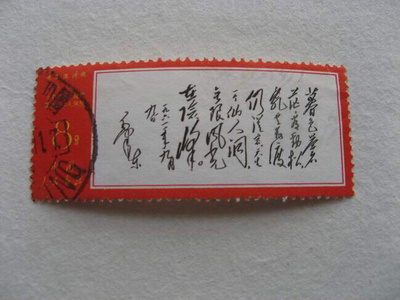 暮色苍
茫看劲松
乱云飞渡
仍从容天生
一个仙人洞
无限风光
在险峰。
一九六一年九月
九日
毛泽东
8分